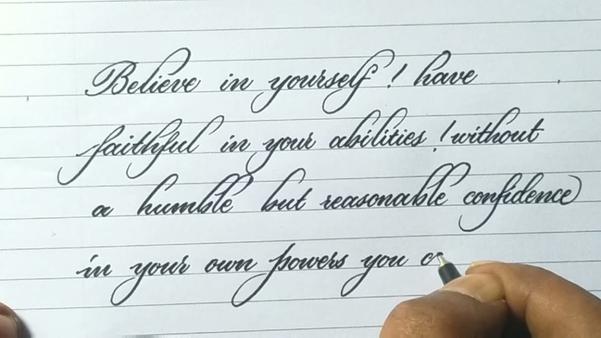 Believe in yourself! have
faithful in your abilities! without
a humble but reasonable confidence
in your own powers you